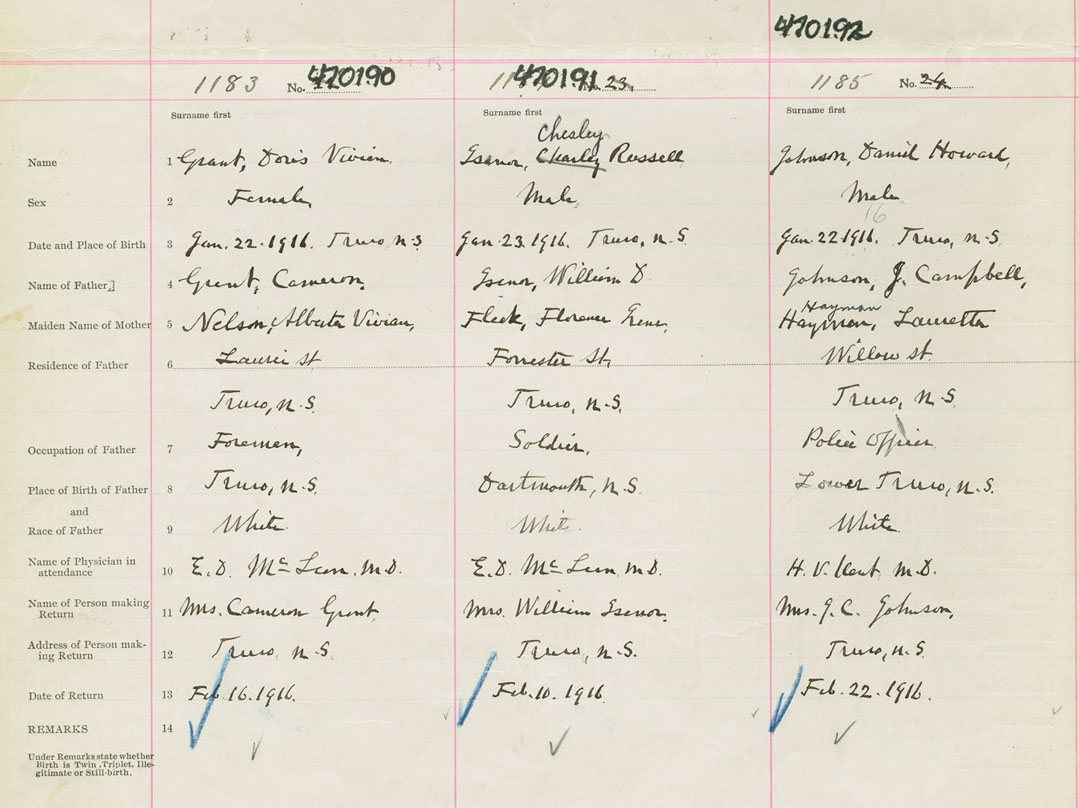 470192
1183 No. 470190 470191 23, 1185 No. 24
Surname first Surname first Surname first
Chesley
Name 1 Grant, Doris Vivien Isenor, Charley Russell Johnson, Daniel Howard,
Sex 2 Female, Male, Male
16
Date and Place of Birth 3 Jan. 22. 1916. Truro, N.S Jan 23. 1916. Truro, N.S. Jan 22 1916. Truro, N.S.
Name of Father,] 4 Grant, Cameron. Isenor, William D. Johnson, J. Campbell,
Hayman
Maiden Name of Mother 5 Nelson, Alberta Vivian, Fleck, Florence Irene, Hayman, Lauretta
Residence of Father 6 Laurie St Forrester St, Willow St.
Truro, N.S. Truro, N.S. Truro, N.S.
Occupation of Father 7 Foreman, Soldier, Police Officer
Place of Birth of Father 8 Truro, N.S. Dartmouth, N.S. Lower Truro, N.S.
and
Race of Father 9 White. White. White
Name of Physician in
attendance 10 E.D. M.D. E.D. M.D. H.V. Kent M.D.
Name of Person making
Return 11 Mrs. Cameron Grant, Mrs. William Isenor, Mrs. J.C. Johnson,
Address of Person mak-
ing Return 12 Truro, N.S. Truro, N.S. Truro, N.S.
Date of Return 13 Feb 16. 1916. Feb. 10. 1916 Feb. 22. 1916.
REMARKS 14
Under Remarks state whether
Birth is Twin, Triplet, Ille-
gitimate or Still-birth.